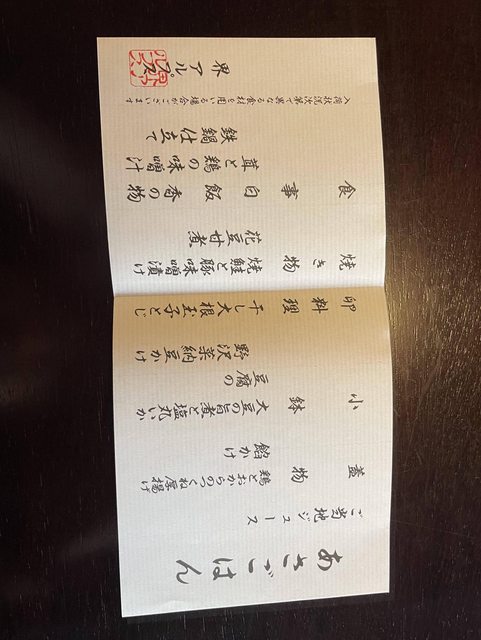 あさごはん
ご当地ジュース
蓋物
鶏とおからのつくね厚揚げ
餡かけ
小鉢
大豆の旨煮と塩丸いか
豆腐の
野沢菜納豆かけ
卵料理
干し大根玉子とじ
焼き物
焼鮭と豚味噌漬け
花豆甘煮
食事
白飯 香の物
茸と鶏の味噌汁
鉄鍋仕立て
入荷状況次第で異なる食材を用いる場合がございます
界 アルプス